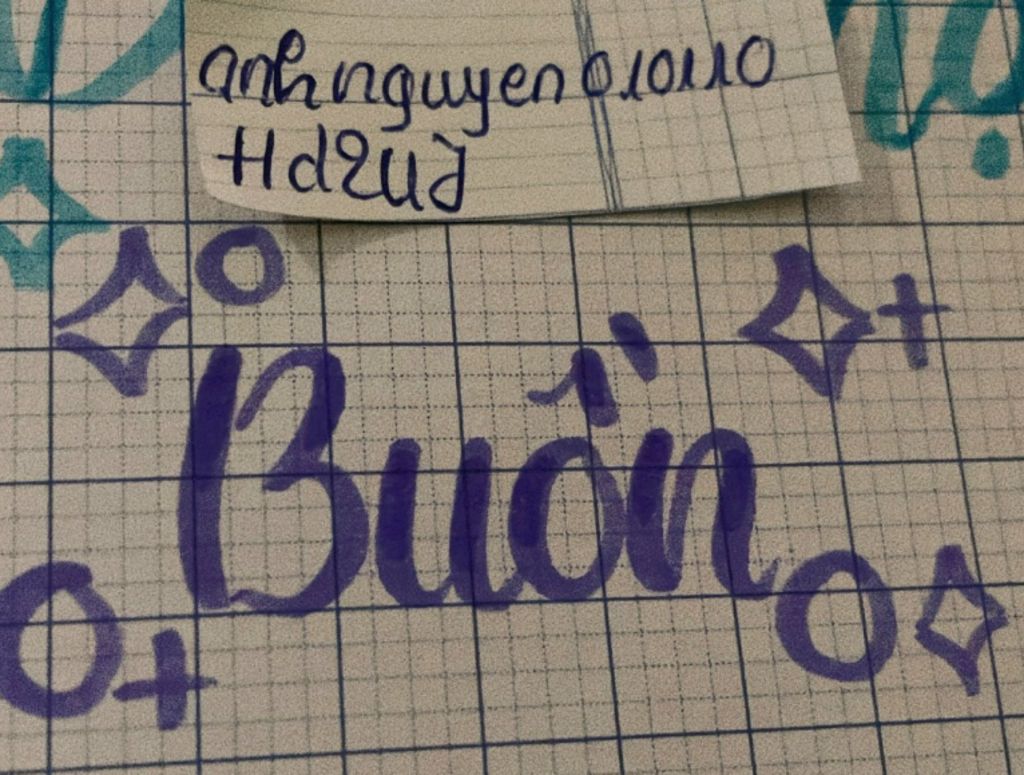 anhnguyen010110
Hd2ug
Buồn